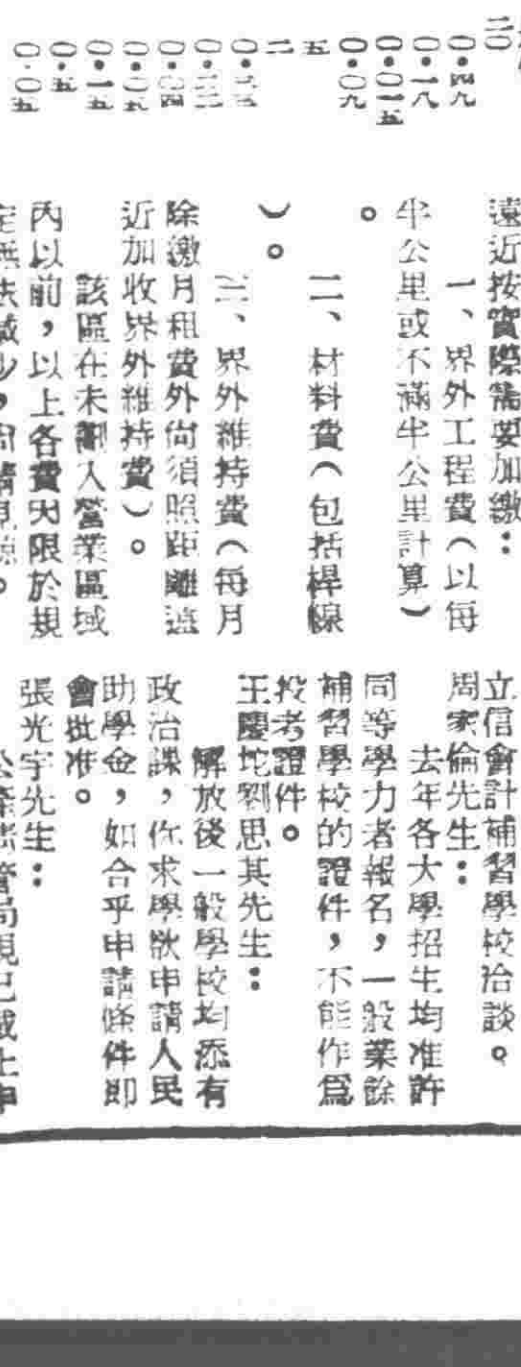 二〇
〇·四九
〇·一八
〇·〇一五
〇·〇九
五
二
〇·二三
〇·二三
〇·四
〇·〇五
〇·一五
〇·五
〇·〇五
遠近按實際需要加繳：
一、界外工程費（以每
半公里或不滿半公里計算）
。
二、材料費（包括桿線
）。
三、界外維持費（每月
除繳月租費外尙須照距離遠
近加收界外維持費）。
該區在未劃入營業區域
內以前，以上各費因限於規
定無法減少，
立信會計補習學校洽談。
周家倫先生：
去年各大學招生均准許
同等學力者報名，一般業餘
補習學校的證件，不能作爲
投考證件。
王慶坨劉思其先生：
解放後一般學校均添有
政治課，你求學欲申請人民
助學金，如合乎申請條件即
會批准。
張光宇先生：
管局現已截止申